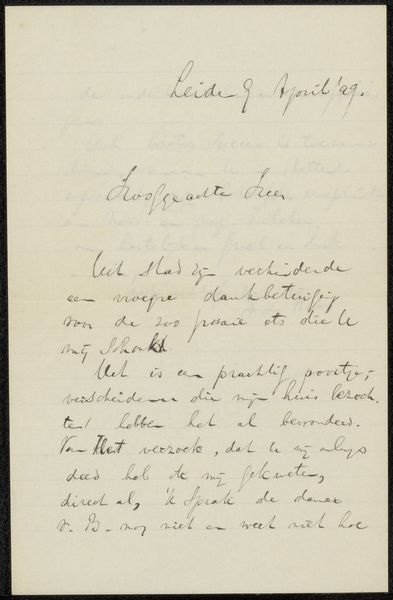 Leide 9 April '29.
Hooggeachte Heer
Uit stad zijn verhinderde
een vroegre dankbetuiging
voor de zoo fraaie ets die U
mij schonk
Het is een prachtig poortje,
verscheidene die mijn huis bezoch
ten hebben het al bewonderd.
Van Uw verzoek, dat U mij onlangs
deed heb ik mij gekweten,
direct al, 'k sprak de dames
v. B- nog niet en weet niet hoe